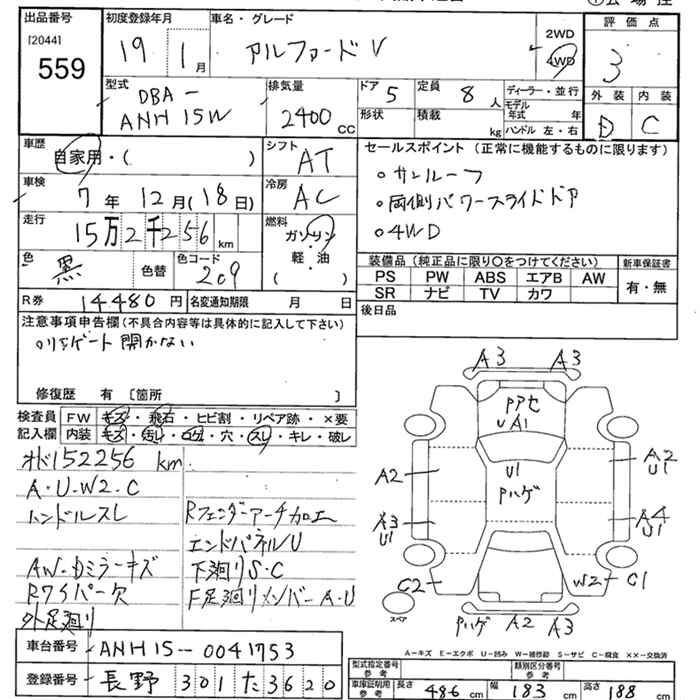 出品番号
[2044]
559
初度登録年月
19 1月
車名・グレード
アルファードV
2WD
4WD
評価点
3
外装 内装
D C
型式
DBA-
ANH15W
排気量
2400 CC
ドア 5
形状
定員 8 人
積載 kg
ディーラー・並行
モデル年式 年
ハンドル 左・右
車歴
自家用・( )
シフト
AT
車検
7年12月(18日)
冷房
AC
走行
15万2千256 km
燃料
ガソリン
軽・油
( )
色
黒
色替
色コード
209
セールスポイント(正常に機能するものに限ります)
○サンルーフ
○両側パワースライドドア
○4WD
装備品(純正品に限り○をつけてください)
PS PW ABS エアB AW
SR ナビ TV カワ
新車保証書
有・無
R券 14480円
名変通知期限 月 日
後日品
注意事項申告欄(不具合内容等は具体的に記入して下さい)
○リヤゲート開かない
修復歴 有 [箇所 ]
検査員 FW キズ・飛石・ヒビ割・リペア跡・×要
記入欄 内装 キズ・汚れ・コゲ・穴・スレ・キレ・破レ
オド152256 km
A・U・W2・C
ハンドルスレ
Rフェンダーアーチ加工
エンドパネルU
AW・Dミラーキズ
下廻りS・C
Rワイパー欠
F足廻りメンバーA・U
外足廻り
車台番号 ANH15-0041753
登録番号 長野 301 た 3620
A3 A3
Pアセ
UA1
U1
Pハゲ
A2
A2
U1
A3
U1
A4
U1
C2
W2 C1
スペア
Pハゲ A2 A3
A-キズ E-エクボ U-凹み W-補修跡 S-サビ C-腐食 ××-交換済
型式指定番号
参考
類別区分番号
参考
車庫証明用
参考
長さ 486 cm
幅 183 cm
高さ 188 cm